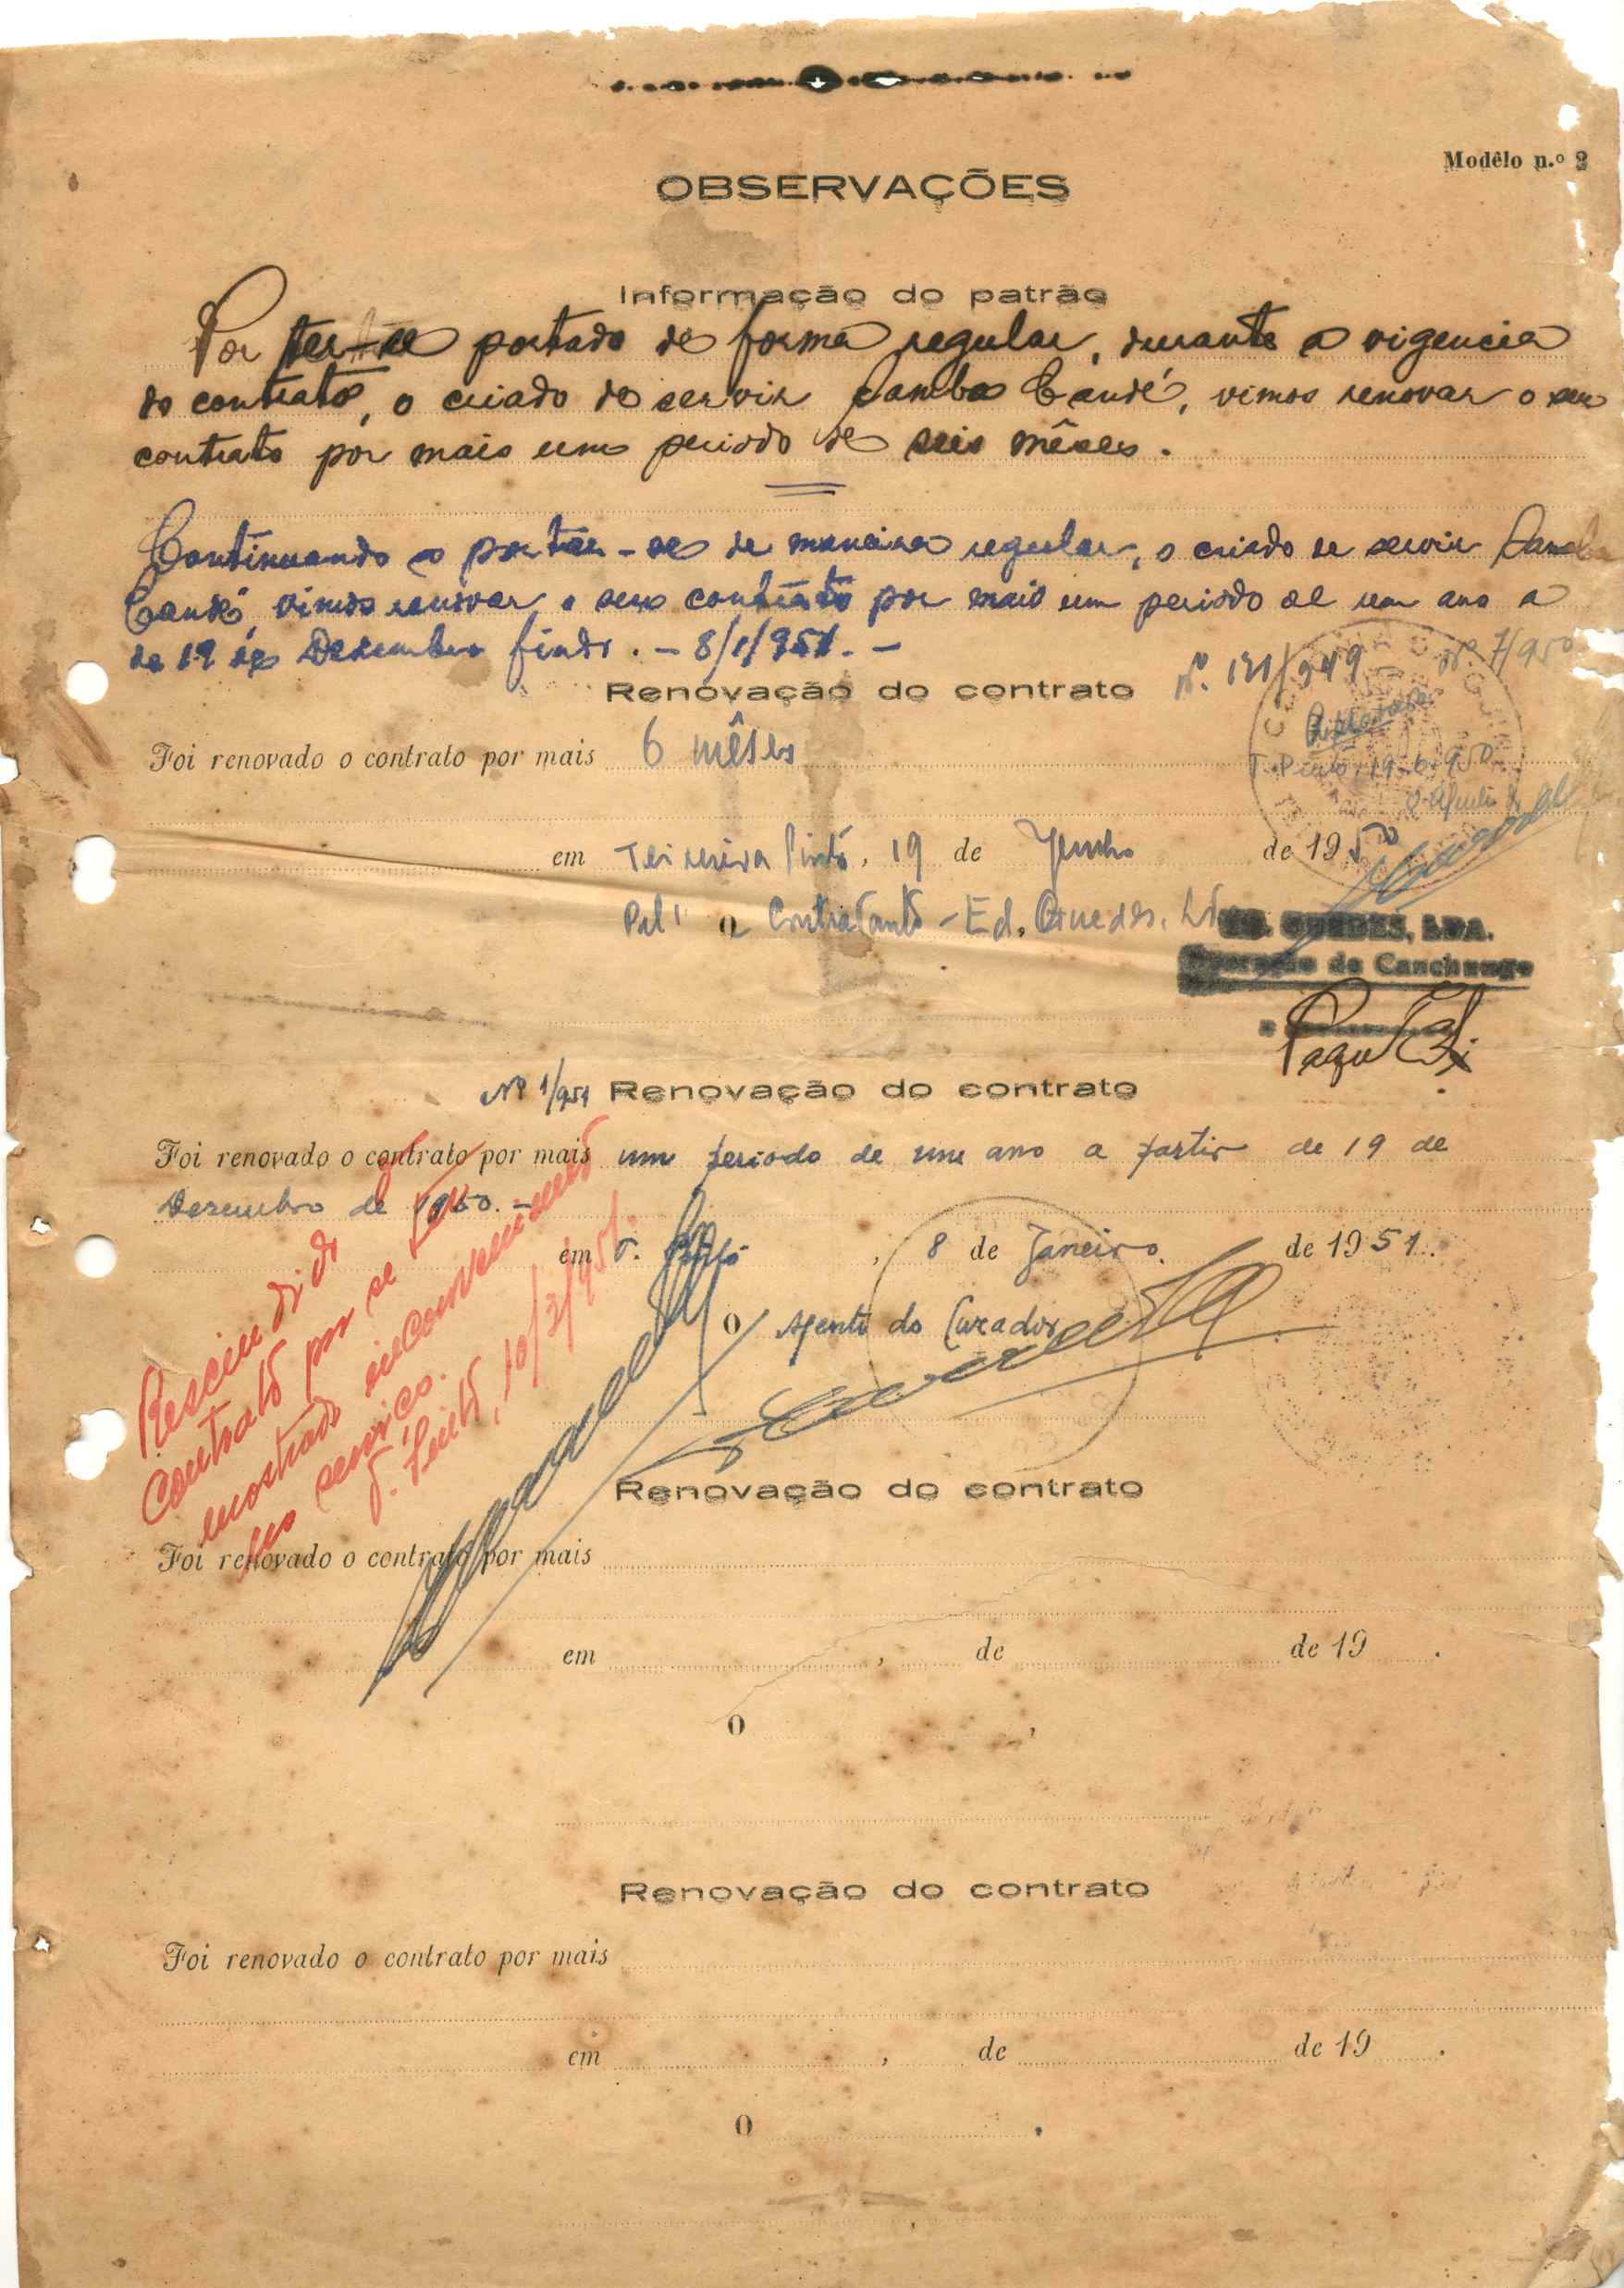 Modêlo n.º 2
OBSERVAÇÕES
Informação do patrão
Por ter-se portado de forma regular, durante a vigencia
do contrato, o criado de servir Samba Candé, vimos renovar o seu
contrato por mais um periodo de seis mêses.
Continuando a portar-se de maneira regular, o criado de servir Samba
Candé, vimos renovar o seu contrato por mais um periodo de um ano a
de 19 de Dezembro findo. - 8/1/951. -
Nº 131/949 nº 7/950
Renovação do contrato
Foi renovado o contrato por mais 6 mêses
T. Pinto, 19-6-950
em Teixeira Pinto, 19 de Junho de 1950
Pel' O Contratante - Ed. Guedes, Lda
ED. GUEDES, LDA.
Operação de Canchungo
Nº 1/951 Renovação do contrato
Foi renovado o contrato por mais um periodo de um ano a partir de 19 de
Dezembro de 1950. -
em T. Pinto, 8 de Janeiro de 1951.
O Agente do Curador
Rescindido o
contrato por se ter
mostrado inconveniente
no serviço.
T. Pinto, 10/3/951.
Renovação do contrato
Foi renovado o contrato por mais
em , de de 19 .
O ,
Renovação do contrato
Foi renovado o contrato por mais
em , de de 19 .
O .